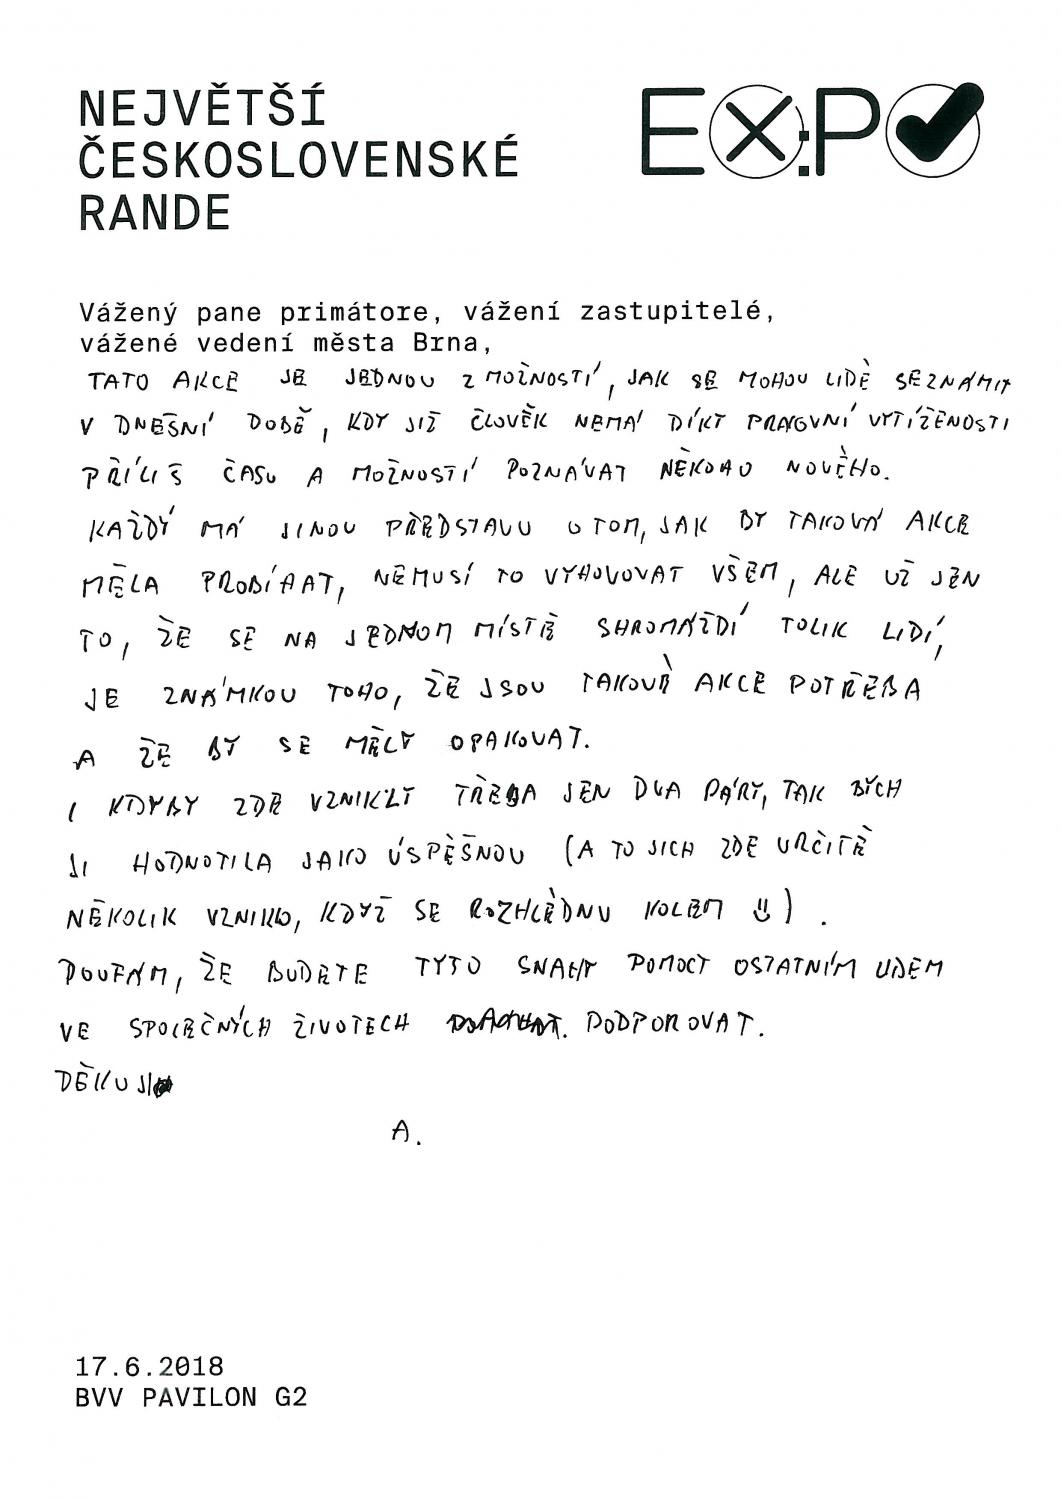 NEJVĚTŠÍ
ČESKOSLOVENSKÉ
RANDE
EX:PO
Vážený pane primátore, vážení zastupitelé,
vážené vedení města Brna,
TATO AKCE JE JEDNOU Z MOŽNOSTÍ, JAK SE MOHOU LIDÉ SEZNÁMIT
V DNEŠNÍ DOBĚ, KDY JIŽ ČLOVĚK NEMÁ DÍKY PRACOVNÍ VYTÍŽENOSTI
PŘÍLIŠ ČASU A MOŽNOSTÍ POZNÁVAT NĚKOHO NOVÉHO.
KAŽDÝ MÁ JINOU PŘEDSTAVU O TOM, JAK BY TAKOVÁ AKCE
MĚLA PROBÍHAT, NEMUSÍ TO VYHOVOVAT VŠEM, ALE UŽ JEN
TO, ŽE SE NA JEDNOM MÍSTĚ SHROMÁŽDÍ TOLIK LIDÍ,
JE ZNÁMKOU TOHO, ŽE JSOU TAKOVÉ AKCE POTŘEBA
A ŽE BY SE MĚLY OPAKOVAT.
I KDYBY ZDE VZNIKLY TŘEBA JEN DVA PÁRY, TAK BYCH
JI HODNOTILA JAKO ÚSPĚŠNOU (A TO JICH ZDE URČITĚ
NĚKOLIK VZNIKLO, KDYŽ SE ROZHLÉDNU KOLEM ☺).
DOUFÁM, ŽE BUDETE TYTO SNAHY POMOCT OSTATNÍM LIDEM
VE SPOLEČNÝCH ŽIVOTECH PODPOROVAT.
DĚKUJI
A.
17.6.2018
BVV PAVILON G2